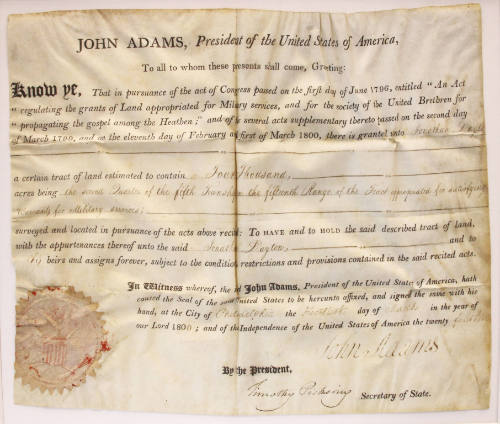 JOHN ADAMS, President of the United States of America,
To all to whom these presents shall come, Greeting:
Know ye, That in pursuance of the act of Congress passed on the first day of June 1796, entitled "An Act
"regulating the grants of Land appropriated for Military services, and for the society of the United Brethren for
"propagating the gospel among the Heathen;" and of several acts supplementary thereto passed on the second day
of March 1799, and on the eleventh day of February and first of March 1800, there is granted unto Jonathan Dayton
a certain tract of land estimated to contain Four Thousand,
acres being the Quarter of the fifth Township the fifteenth Range of the Tract appropriated for satisfying
Warrants for Military services;
surveyed and located in pursuance of the acts above recited: To HAVE and to HOLD the said described tract of land,
with the appurtenances thereof unto the said Jonathan Dayton, and to
his heirs and assigns forever, subject to the conditions, restrictions and provisions contained in the said recited acts.
In Witness whereof, the said John Adams, President of the United States of America, hath
caused the Seal of the said United States to be hereunto affixed, and signed the same with his
hand, at the City of Philadelphia the day of March in the year of
our Lord 1800; and of the Independence of the United States of America the twenty fourth
John Adams
By the President,
Timothy Pickering Secretary of State.